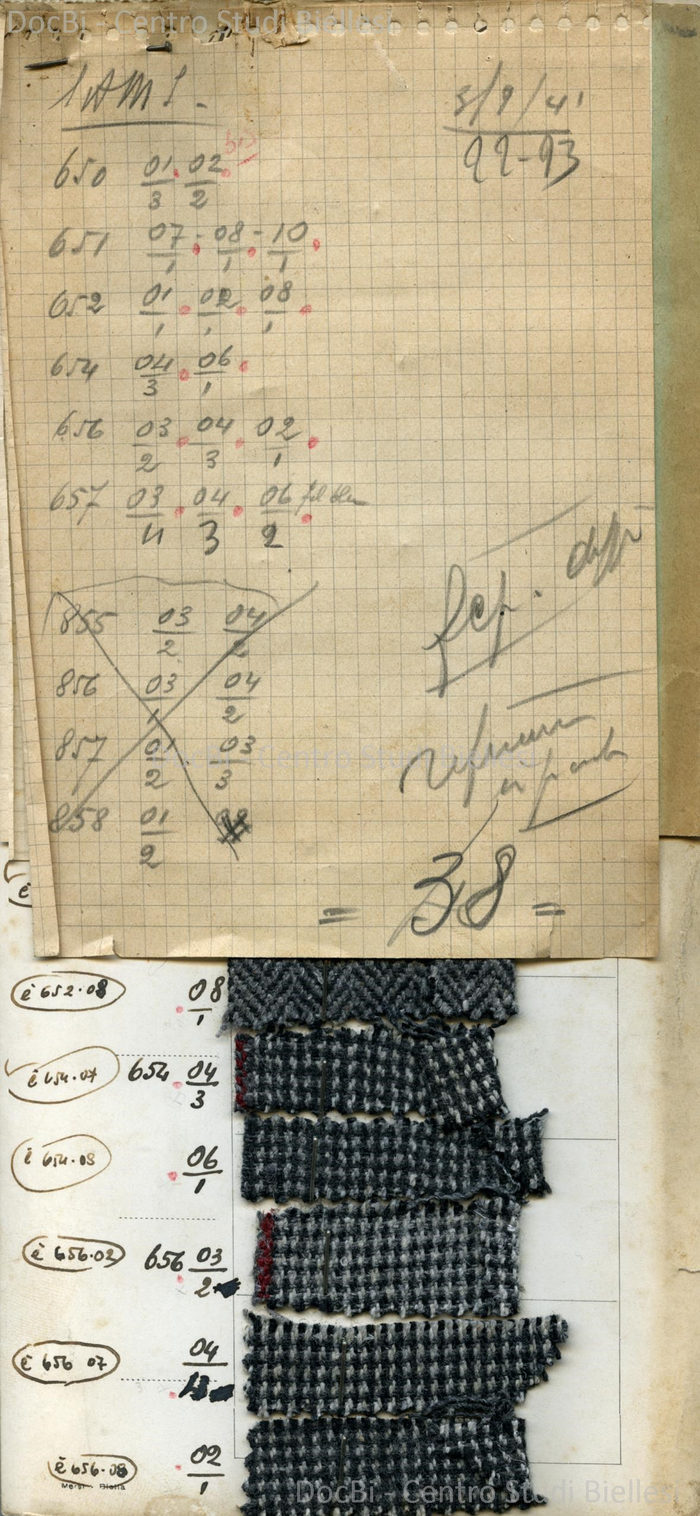 DocBi - Centro Studi Biellesi
LAMI.
3/9/41
92-93
650 01/3 02/2
651 07/1 - 08/1 - 10/1
652 01/1 02/1 08/1
654 04/3 06/1
656 03/2 04/3 02/1
657 03/4 04/3 06/2
855 03/2 04/2
856 03/1 04/2
857 01/2 03/3
858 01/2
DocBi - Centro Studi Biellesi
= 38 =
è 652·08 08/1
è 654·07 654 04/3
è 654·08 06/1
è 656·02 656 03/2
è 656 07 04
è 656·08 02/1
DocBi - Centro Studi Biellesi